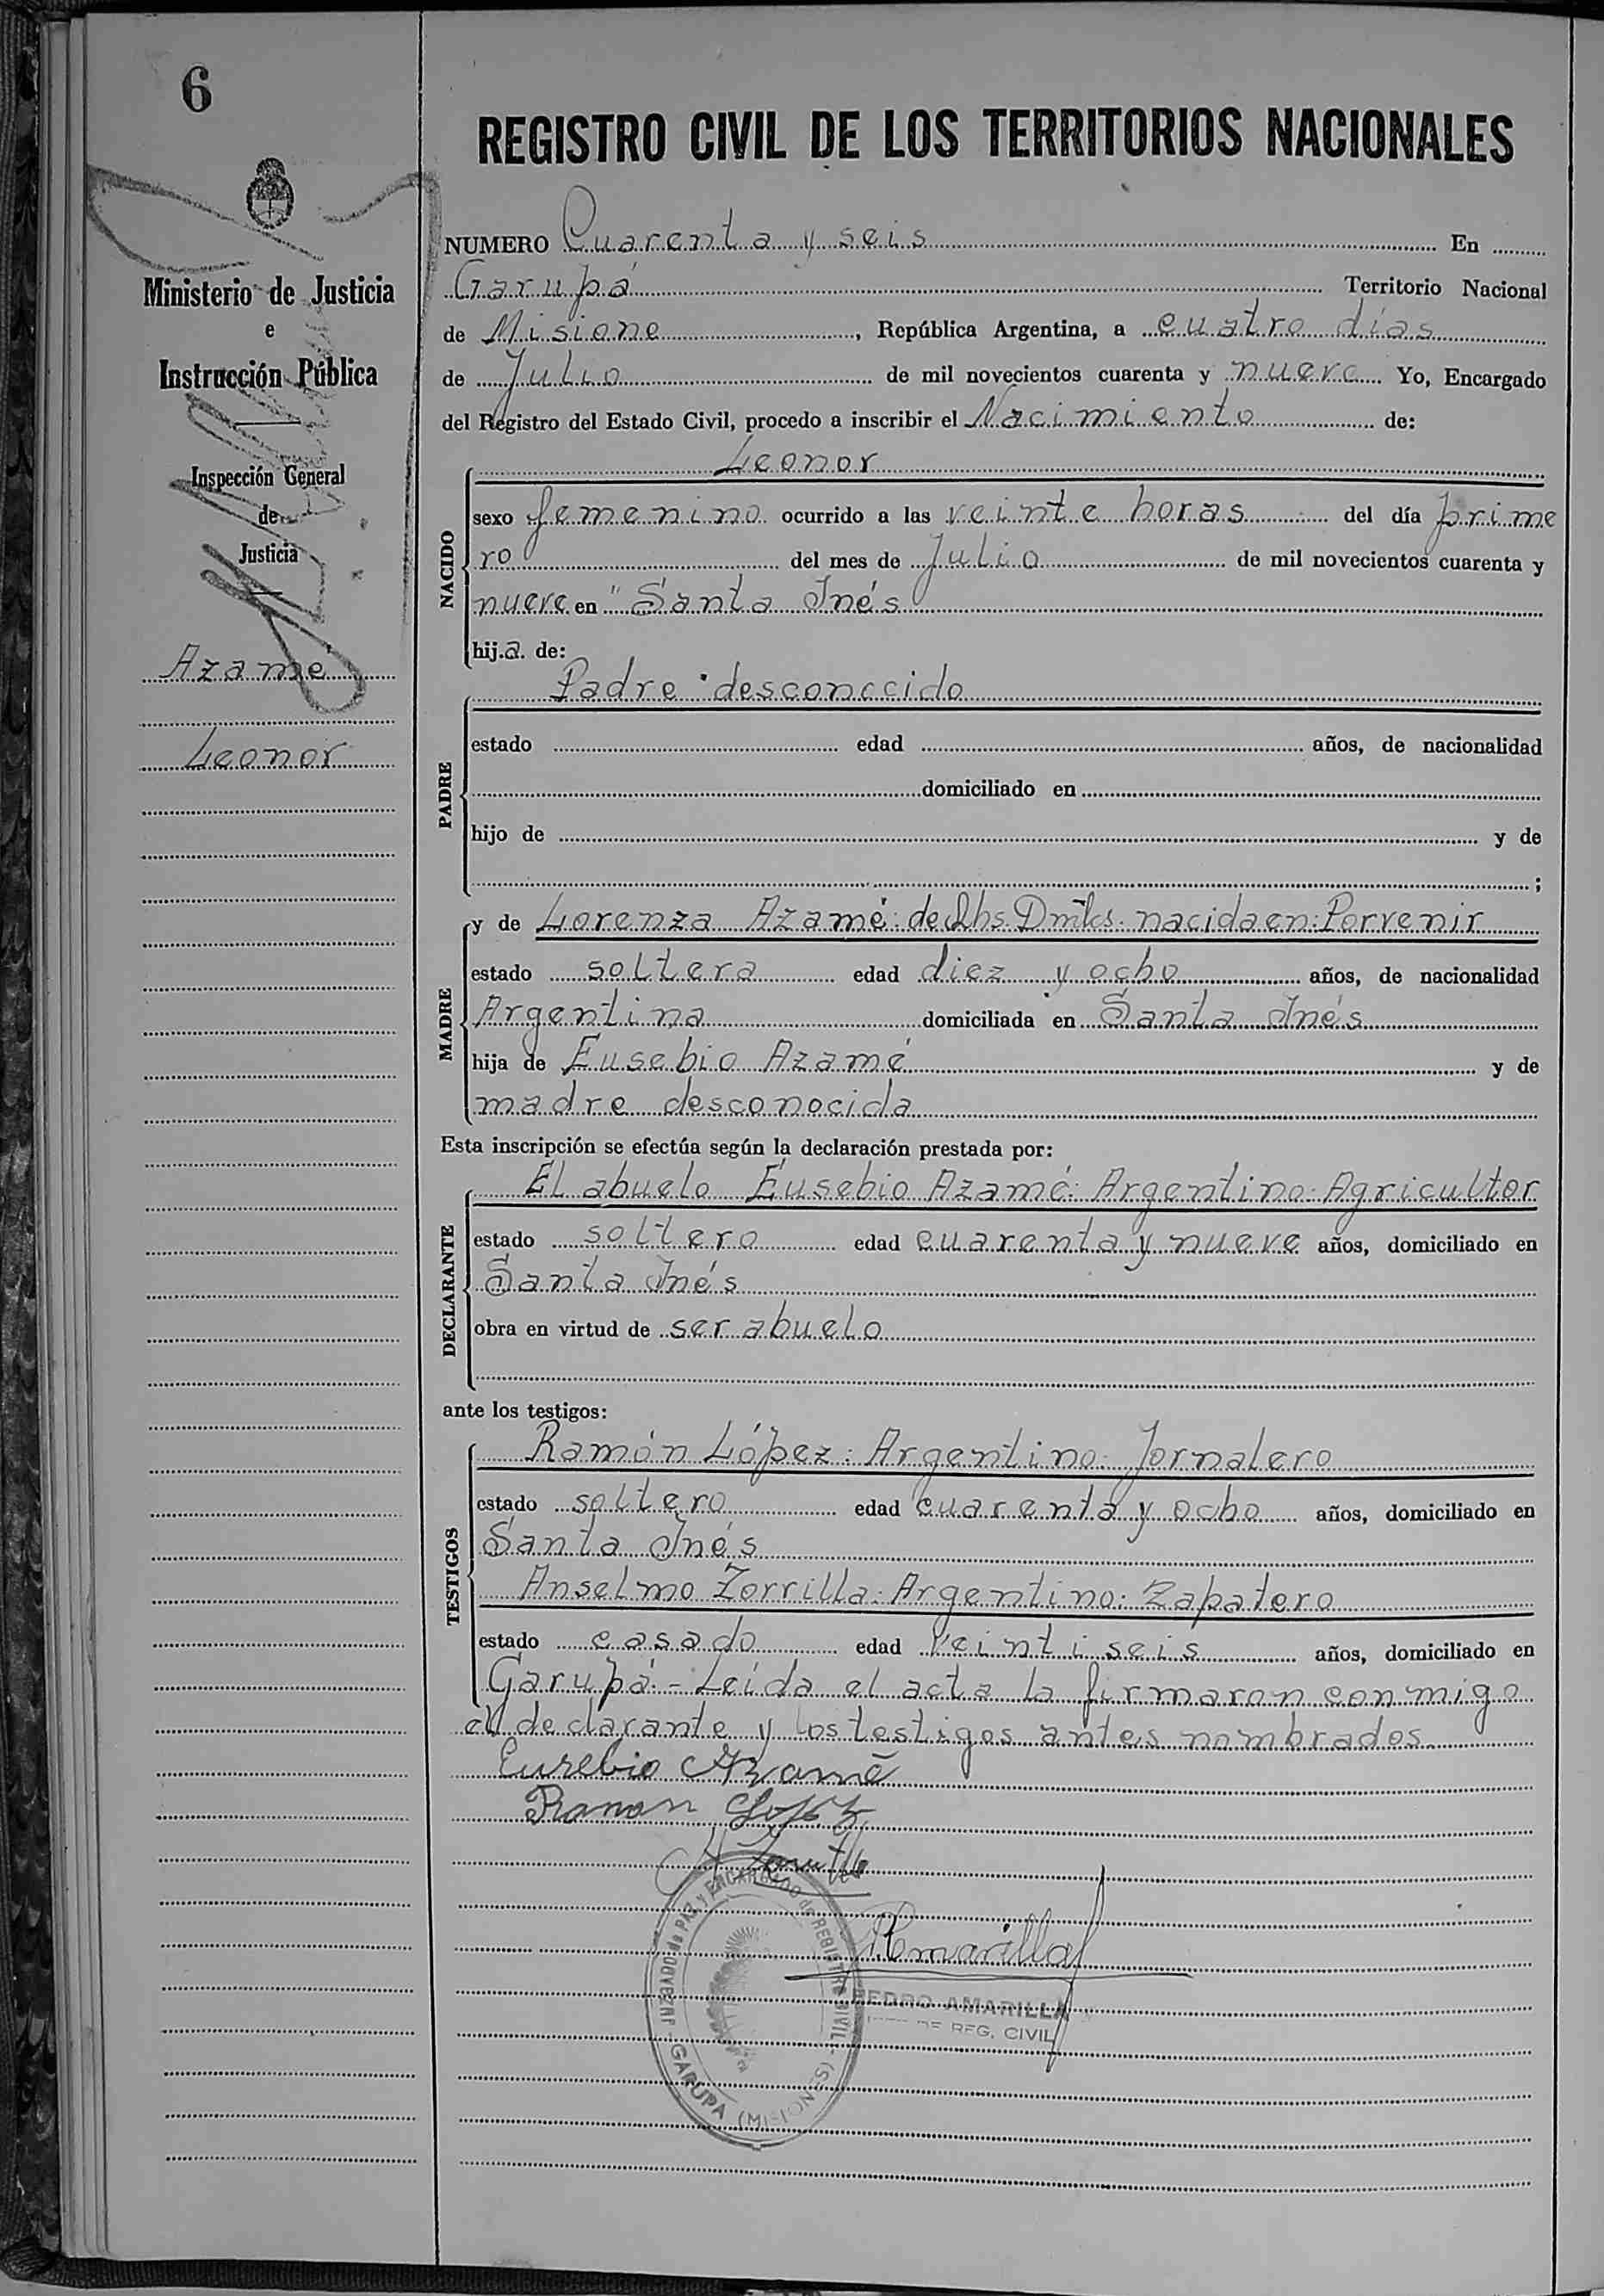 6
REGISTRO CIVIL DE LOS TERRITORIOS NACIONALES
Ministerio de Justicia
e
Instrucción Pública
Inspección General
de
Justicia
Azamé
Leonor
NUMERO Cuarenta y seis En
Garupá Territorio Nacional
de Misione, República Argentina, a cuatro días
de Julio de mil novecientos cuarenta y nueve Yo, Encargado
del Registro del Estado Civil, procedo a inscribir el Nacimiento de:
Leonor
NACIDO
sexo femenino ocurrido a las veinte horas del día prime
ro del mes de Julio de mil novecientos cuarenta y
nueve en "Santa Inés
hij.a. de:
Padre desconocido
PADRE
estado edad años, de nacionalidad
domiciliado en
hijo de y de
;
y de Lorenza Azamé: de nacida en: Porvenir
MADRE
estado soltera edad diez y ocho años, de nacionalidad
Argentina domiciliada en Santa Inés
hija de Eusebio Azamé y de
madre desconocida
Esta inscripción se efectúa según la declaración prestada por:
El abuelo Eusebio Azamé: Argentino: Agricultor
DECLARANTE
estado soltero edad cuarenta y nueve años, domiciliado en
Santa Inés
obra en virtud de ser abuelo
ante los testigos:
Ramón López: Argentino: Jornalero
TESTIGOS
estado soltero edad cuarenta y ocho años, domiciliado en
Santa Inés
Anselmo Zorrilla: Argentino: Zapatero
estado casado edad veintiseis años, domiciliado en
Garupá.- Leída el acta la firmaron conmigo
el declarante y los testigos antes nombrados.
Eusebio Azamé
Ramon Lopez
A Zorrilla
P. Amarilla
PEDRO AMARILLA
DE REG. CIVIL
JUZGADO de PAZ y ENCARGADO de REGISTRO CIVIL - GARUPA (MISIONES)